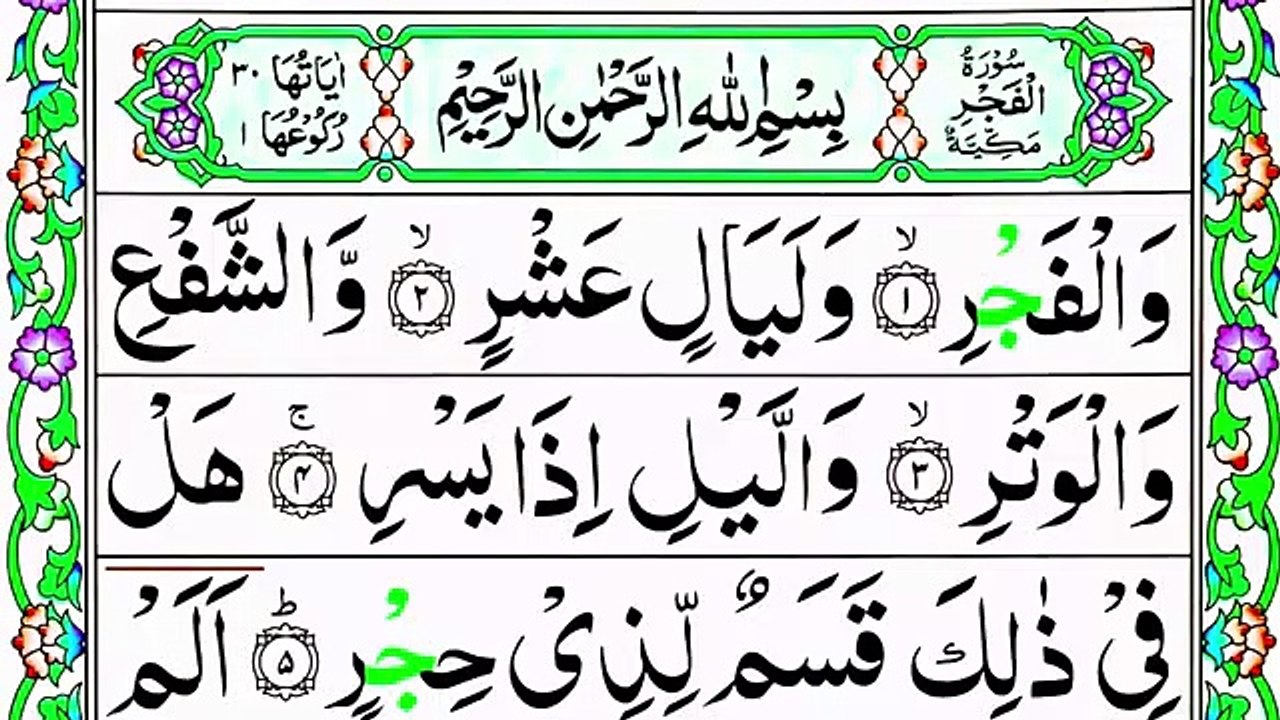 سُوْرَةُ
الْفَجْرِ
مَكِّيَّةٌ
بِسْمِ اللّٰهِ الرَّحْمٰنِ الرَّحِيْمِ
اٰيَاتُهَا ٣٠
رُكُوْعُهَا ١
وَالْفَجْرِ ۙ‏﴿۱﴾ وَلَيَالٍ عَشْرٍ ۙ‏﴿۲﴾ وَّالشَّفْعِ
وَالْوَتْرِ ۙ‏﴿۳﴾ وَالَّيْلِ اِذَا يَسْرِ ۚ‏﴿۴﴾ هَلْ
فِىْ ذٰلِكَ قَسَمٌ لِّذِىْ حِجْرٍ ؕ‏﴿۵﴾ اَلَمْ